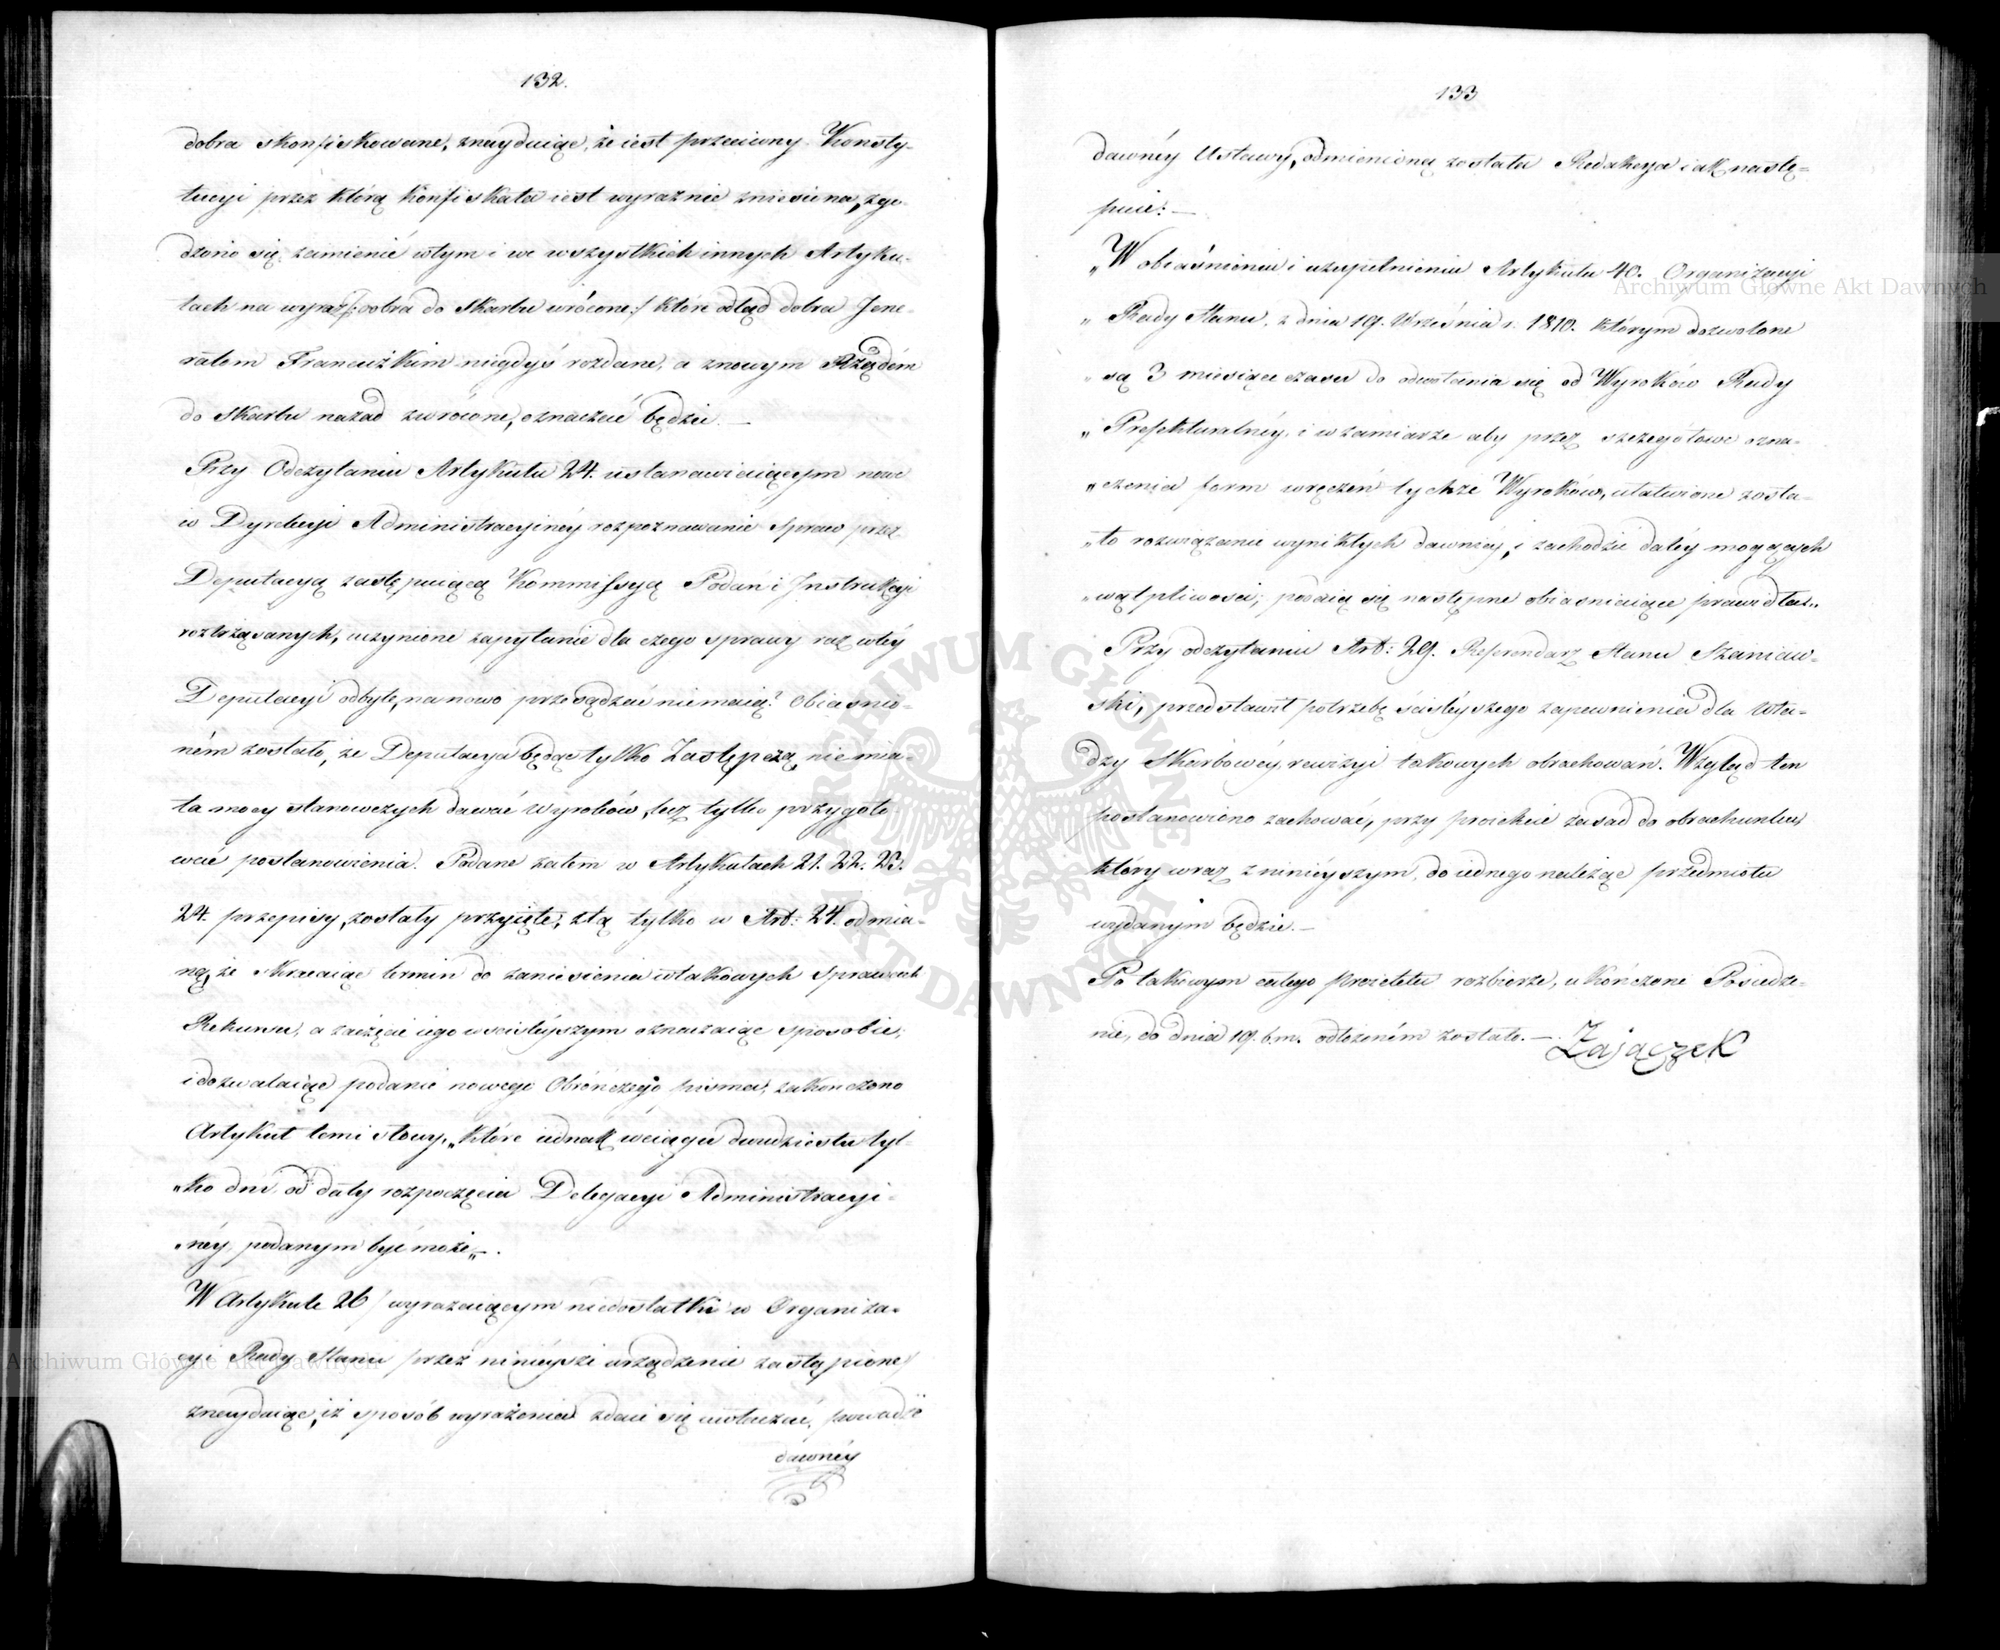 132.
dobra skonfiskowane, znayduiąc, że iest przeciwny Konsty-
tucyi przez którą konfiskata iest wyraźnie zniesiona, zgo-
dzono się zamienić wtym i we wszystkich innych Artyku-
łach na wyraz /: dobra do Skarbu wrócone :/ które odtąd dobra Jene-
rałom Francuzkim niegdyś rozdane, a znowym Rządem
do Skarbu nazad zwrócone, oznaczać będzie. —
Przy Odczytaniu Artykułu 24. ustanawiaiącym nowe
w Dyrekcyi Administracyinéy rozpoznawanie Spraw przez
Deputacyą zastępuiącą Kommissyą Podań i Instrukcyi
roztrząsanych, uczynione zapytanie dla czego sprawy raz wtéy
Deputacyi odbyte, na nowo przesądzać niemaią? Obiaśnio-
ném zostało, że Deputacya będąc tylko Zastępczą, nie mia-
ła mocy stanowczych dawać Wyroków, lecz tylko przygoto-
wać postanowienia. Podane zatem w Artykułach 21. 22. 23.
24. przepisy, zostały przyięte, z tą tylko w Art: 24. odmia-
ną, że skracaiąc termin do zaniesienia w takowych Sprawach
Rekursu, a zaczęcie iego w ściśleyszym oznaczaiąc sposobie,
i dozwalaiąc podanie nowego Obrończego pisma, zakończono
Artykuł temi słowy, „które iednak wciągu dwudziestu tyl-
„ko dni od daty rozpoczęcia Delegacyi Administracyi-
„néy, podanym być może„ —.
W Artykule 26/ wyrażaiącym niedostatki w Organiza-
cyi Rady Stanu przez ninieysze urządzenie zastąpione/
znayduiąc, iż sposób wyrażenia zdaie się uwłaczać, powadze
dawnéy
133
dawnéy Ustawy, odmienioną została Redakcya iak nastę-
puie: —
„W obiaśnieniu i uzupełnieniu Artykułu 40. Organizacyi
„Rady Stanu, z dnia 19. Września r. 1810. którym dozwolone
„są 3 miesiące czasu do odwołania się od Wyroków Rady
„Prefekturalnéy, i w zamiarze aby przez szczegółowe ozna-
„czenia form wręczeń tychże Wyroków, ułatwione zosta-
„ło rozwiązanie wynikłych dawniéy, i zachodzić daléy mogących
„wątpliwości; podaią się następne obiaśniaiące prawidła„
Przy odczytaniu Art: 29. Referendarz Stanu Szaniaw-
ski, przedstawił potrzebę ściśleyszego zapewnienia dla Wła-
dzy Skarbowéy, rewizyi takowych obrachowań. Wzgląd ten
postanowiono zachować, przy proiekcie zasad do obrachunku,
który wraz z ninieyszym, do iednego należąc przedmiotu
wydanym będzie. —
Po takowym całego proiektu rozbiorze, ukończone Posiedze-
nie, do dnia 19. b. m. odłożoném zostało. —. Zajączek
Archiwum Główne Akt Dawnych
Archiwum Główne Akt Dawnych
ARCHIWUM GŁÓWNE AKT DAWNYCH